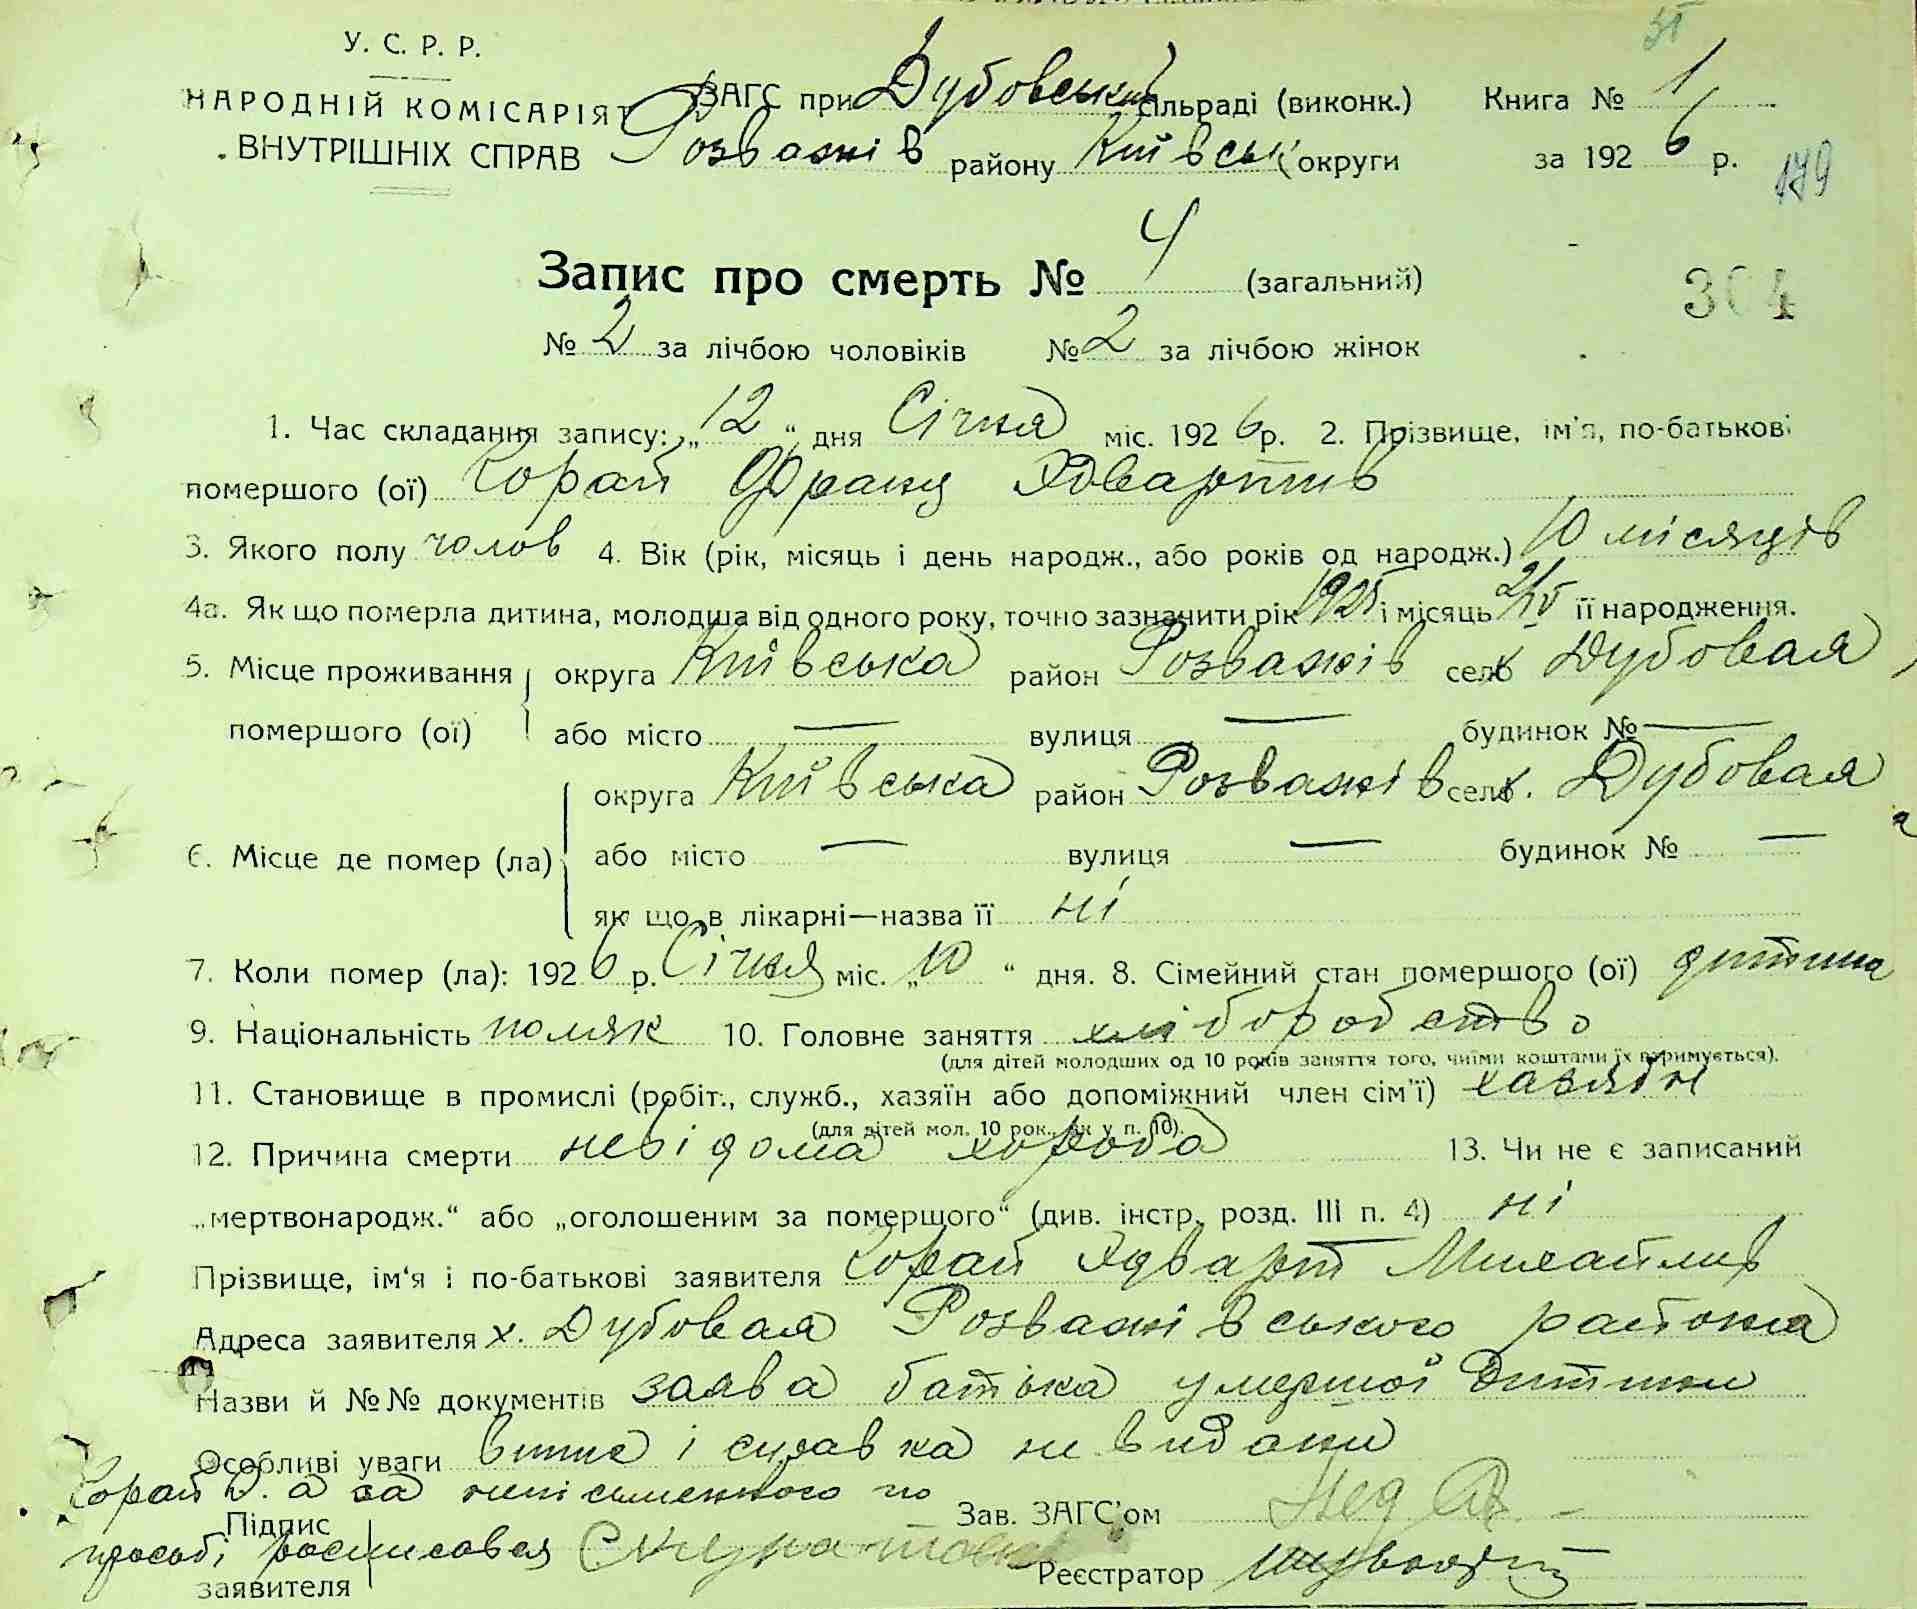 У. С. Р. Р.
НАРОДНІЙ КОМІСАРІЯТ
ВНУТРІШНІХ СПРАВ
ЗАГС при Дубовській сільраді (виконк.) Книга № 1
Розважів району Київськ округи за 1926 р. 179
Запис про смерть № 4 (загальний)
304
№ 2 за лічбою чоловіків № 2 за лічбою жінок
1. Час складання запису: „12“ дня Січня міс. 1926 р. 2. Прізвище, ім'я, по-батькові
помершого (ої) Корай Франц Ядвартив
3. Якого полу чолов 4. Вік (рік, місяць і день народж., або років од народж.) 10 місяців
4а. Як що померла дитина, молодша від одного року, точно зазначити рік 1925 і місяць її народження.
5. Місце проживання помершого (ої) округа Київська район Розважів село х Дубовая
або місто — вулиця — будинок № —
6. Місце де помер (ла) округа Київська район Розважів село х. Дубовая
або місто — вулиця — будинок № —
як що в лікарні—назва її ні
7. Коли помер (ла): 1926 р. Січня міс. „10“ дня. 8. Сімейний стан помершого (ої) дитина
9. Національність поляк 10. Головне заняття хліборобство
(для дітей молодших од 10 років заняття того, чиїми коштами їх утримується).
11. Становище в промислі (робіт., служб., хазяїн або допоміжний член сім'ї) хазяїн
(для дітей мол. 10 рок., як у п. 10).
12. Причина смерти невідома хороба 13. Чи не є записаний
„мертвонародж.“ або „оголошеним за померщого“ (див. інстр. розд. III п. 4) ні
Прізвище, ім'я і по-батькові заявителя Корай Ядварт Михайлив
Адреса заявителя х. Дубовая Розважівського района
Назви й №№ документів заява батька умершої дитини
Особливі уваги витяг і справка не видани
Корай а за неписьменного по
Підпис Зав. ЗАГС'ом
прозьбі росписовся
заявителя Реєстратор